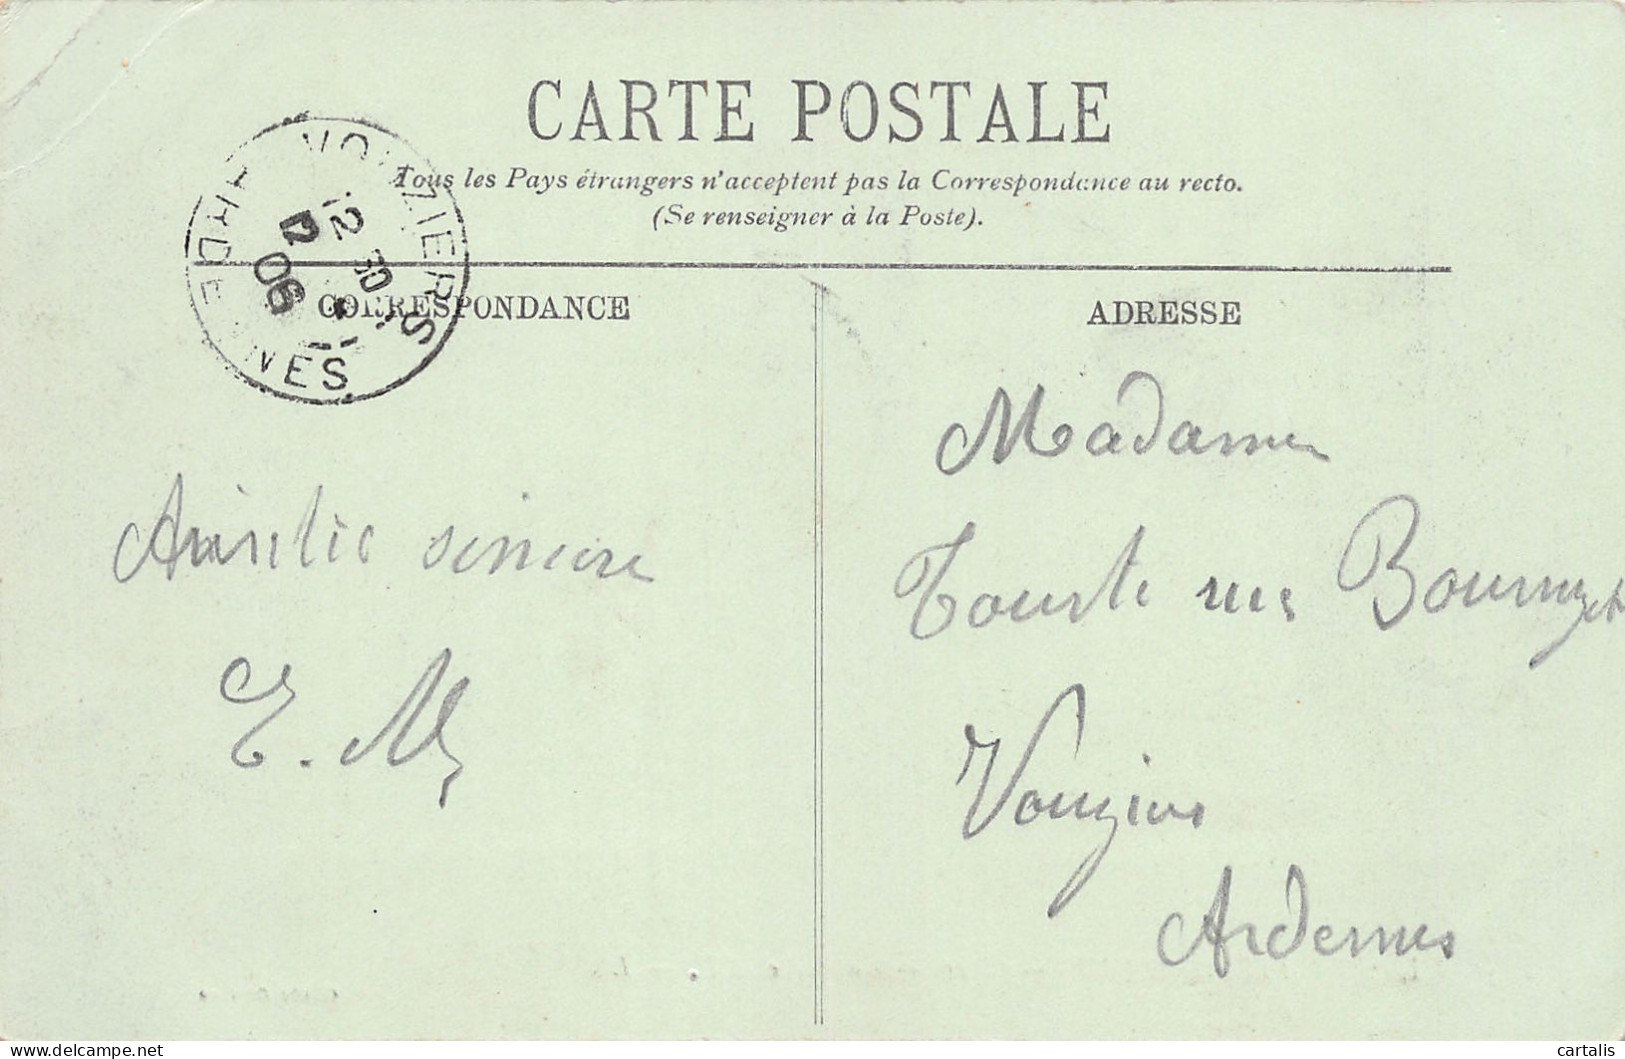 CARTE POSTALE
Tous les Pays étrangers n'acceptent pas la Correspondance au recto.
(Se renseigner à la Poste).
VOUZIERS
ARDENNES
12 06
CORRESPONDANCE
ADRESSE
Madame
Amitié sincère
Tourte rue Bournizet
E. M
Vouziers
Ardennes
delcampe.net
cartalis